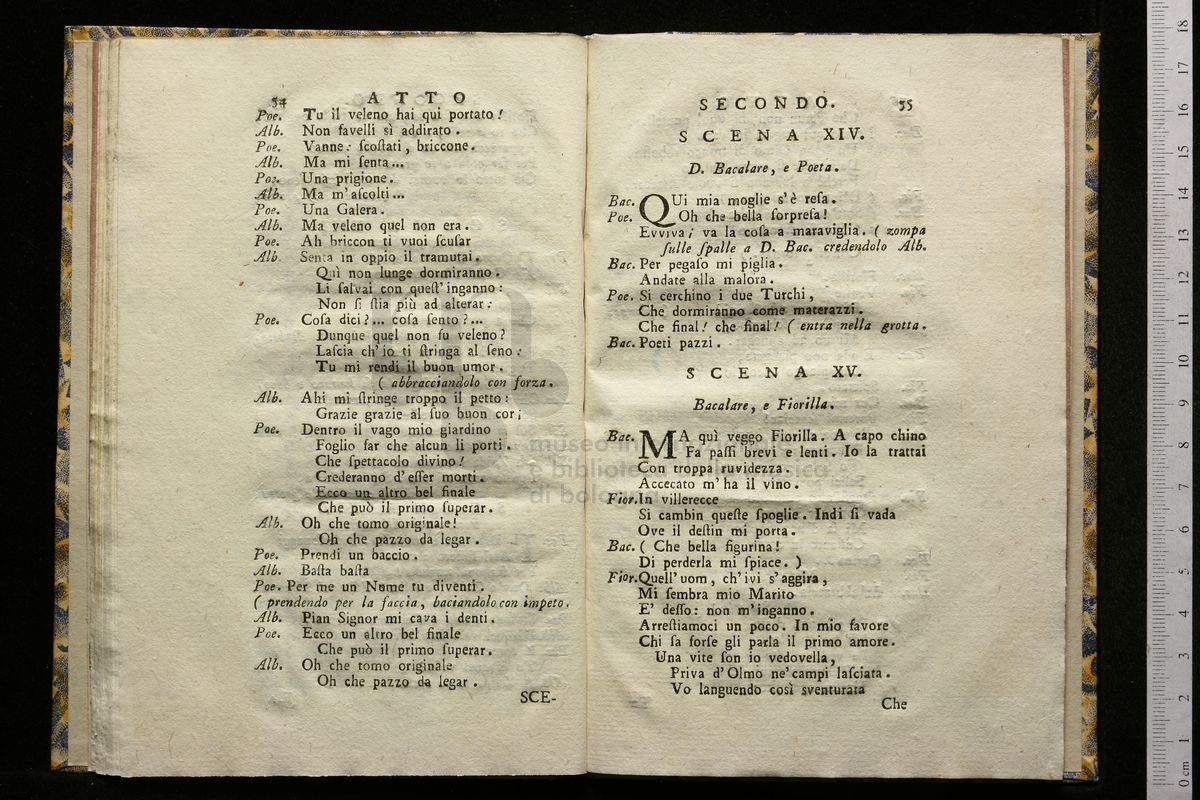 54 ATTO
Poe. Tu il veleno hai qui portato!
Alb. Non favelli sì addirato.
Poe. Vanne: ſcoſtati, briccone.
Alb. Ma mi ſenta...
Poe. Una prigione.
Alb. Ma m'aſcolti...
Poe. Una Galera.
Alb. Ma veleno quel non era.
Poe. Ah briccon ti vuoi ſcuſar
Alb. Senta in oppio il tramutai.
Quì non lunge dormiranno.
Li ſalvai con queſt'inganno:
Non ſi ſtia più ad alterar:
Poe. Coſa dici?... coſa ſento?...
Dunque quel non fu veleno?
Laſcia ch'io ti ſtringa al ſeno:
Tu mi rendi il buon umor.
( abbracciandolo con forza.
Alb. Ahi mi ſtringe troppo il petto:
Grazie grazie al ſuo buon cor;
Poe. Dentro il vago mio giardino
Foglio far che alcun li porti.
Che ſpettacolo divino!
Crederanno d'eſſer morti.
Ecco un altro bel finale
Che può il primo ſuperar.
Alb. Oh che tomo originale!
Oh che pazzo da legar.
Poe. Prendi un baccio.
Alb. Baſta baſta
Poe. Per me un Nume tu diventi.
( prendendo per la faccia, baciandolo con impeto.
Alb. Pian Signor mi cava i denti.
Poe. Ecco un altro bel finale
Che può il primo ſuperar.
Alb. Oh che tomo originale
Oh che pazzo da legar.
SCE-
SECONDO. 55
SCENA XIV.
D. Bacalare, e Poeta.
Bac. QUi mia moglie s'è reſa.
Poe. Oh che bella ſorpreſa!
Evviva; va la coſa a maraviglia. ( zompa
ſulle ſpalle a D. Bac. credendolo Alb.
Bac. Per pegaſo mi piglia.
Andate alla malora.
Poe. Si cerchino i due Turchi,
Che dormiranno come materazzi.
Che final! che final! ( entra nella grotta.
Bac. Poeti pazzi.
SCENA XV.
Bacalare, e Fiorilla.
Bac. MA quì veggo Fiorilla. A capo chino
Fa paſſi brevi e lenti. Io la trattai
Con troppa ruvidezza.
Accecato m'ha il vino.
Fior. In villerecce
Si cambin queſte ſpoglie. Indi ſi vada
Ove il deſtin mi porta.
Bac. ( Che bella figurina!
Di perderla mi ſpiace. )
Fior. Quell'uom, ch'ivi s'aggira,
Mi ſembra mio Marito
E' deſſo: non m'inganno.
Arreſtiamoci un poco. In mio favore
Chi ſa forſe gli parla il primo amore.
Una vite ſon io vedovella,
Priva d'Olmo ne'campi laſciata.
Vo languendo così sventurata
Che
0 cm 1 2 3 4 5 6 7 8 9 10 11 12 13 14 15 16 17 18